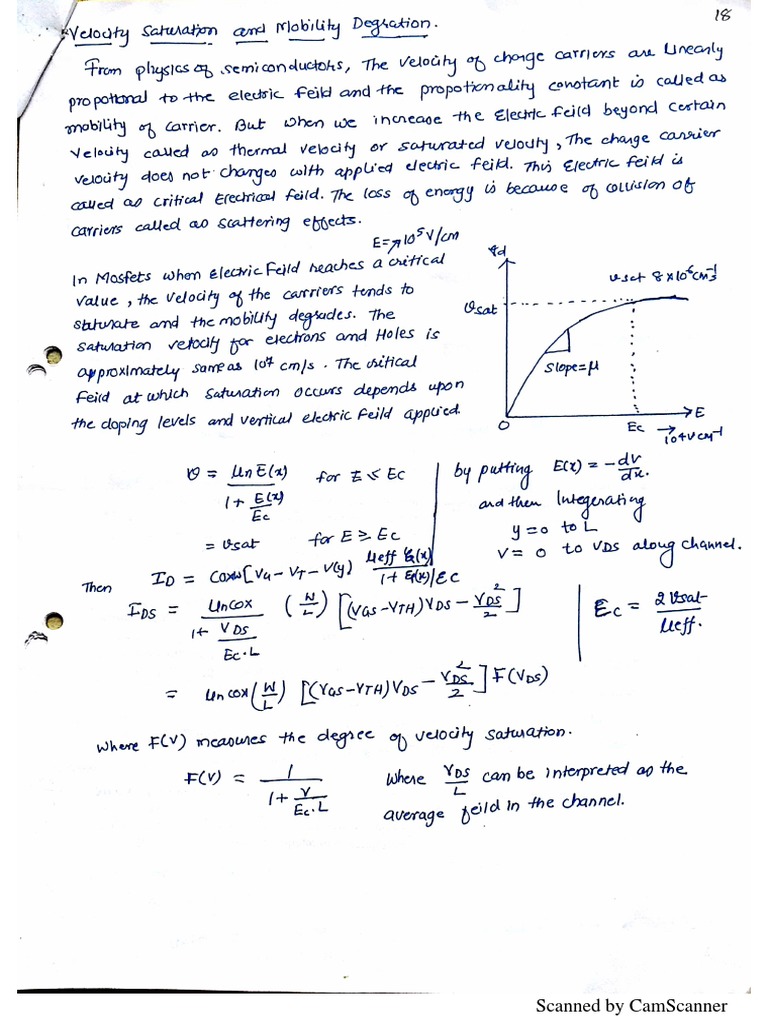 18
Velocity Saturation and Mobility Degration.
From physics of semiconductors, The velocity of charge carriers are linearly
propotional to the electric feild and the propotionality constant is called as
mobility of carrier. But when we increase the Electric feild beyond certain
velocity called as thermal velocity or saturated velouty, The charge carrier
velocity does not changes with applied electric feild. This Electric feild is
called as critical Electrical feild. The loss of energy is because of collision of
carriers called as scattering effects.
E=>10⁵V/cm
In Mosfets when Electric Feild reaches a critical
value, the velocity of the carriers tends to
staturate and the mobility degrades. The
saturation velocity for electrons and Holes is
approximately same as 10⁷ cm/s. The critical
Feild at which saturation occurs depends upon
the doping levels and vertical electric feild applied.
ϑd
ϑsat 8×10⁶ cm⁻¹s
ϑsat
slope=μ
0
Ec
E
→10⁴Vcm⁻¹
ϑ = μnE(x) / 1 + E(x)/Ec for E ≤ Ec
= ϑsat for E ≥ Ec
by putting E(x) = -dv/dx.
and then Integerating
y=0 to L
V= 0 to VDS along channel.
Then ID = Coxω[VG - VT - V(y) μeff E(x) / 1+ E(x)/Ec
IDS = μncox / 1+ VDS/Ec.L (W/L) [(VGS-VTH)VDS - VDS²/2]
Ec = 2ϑsat/μeff.
= μncox(W/L) [(VGS-VTH)VDS - VDS²/2] F(VDS)
where F(V) measures the degree of velocity saturation.
F(V) = 1 / 1+ V/Ec.L
where VDS/L can be interpreted as the
average feild in the channel.
Scanned by CamScanner